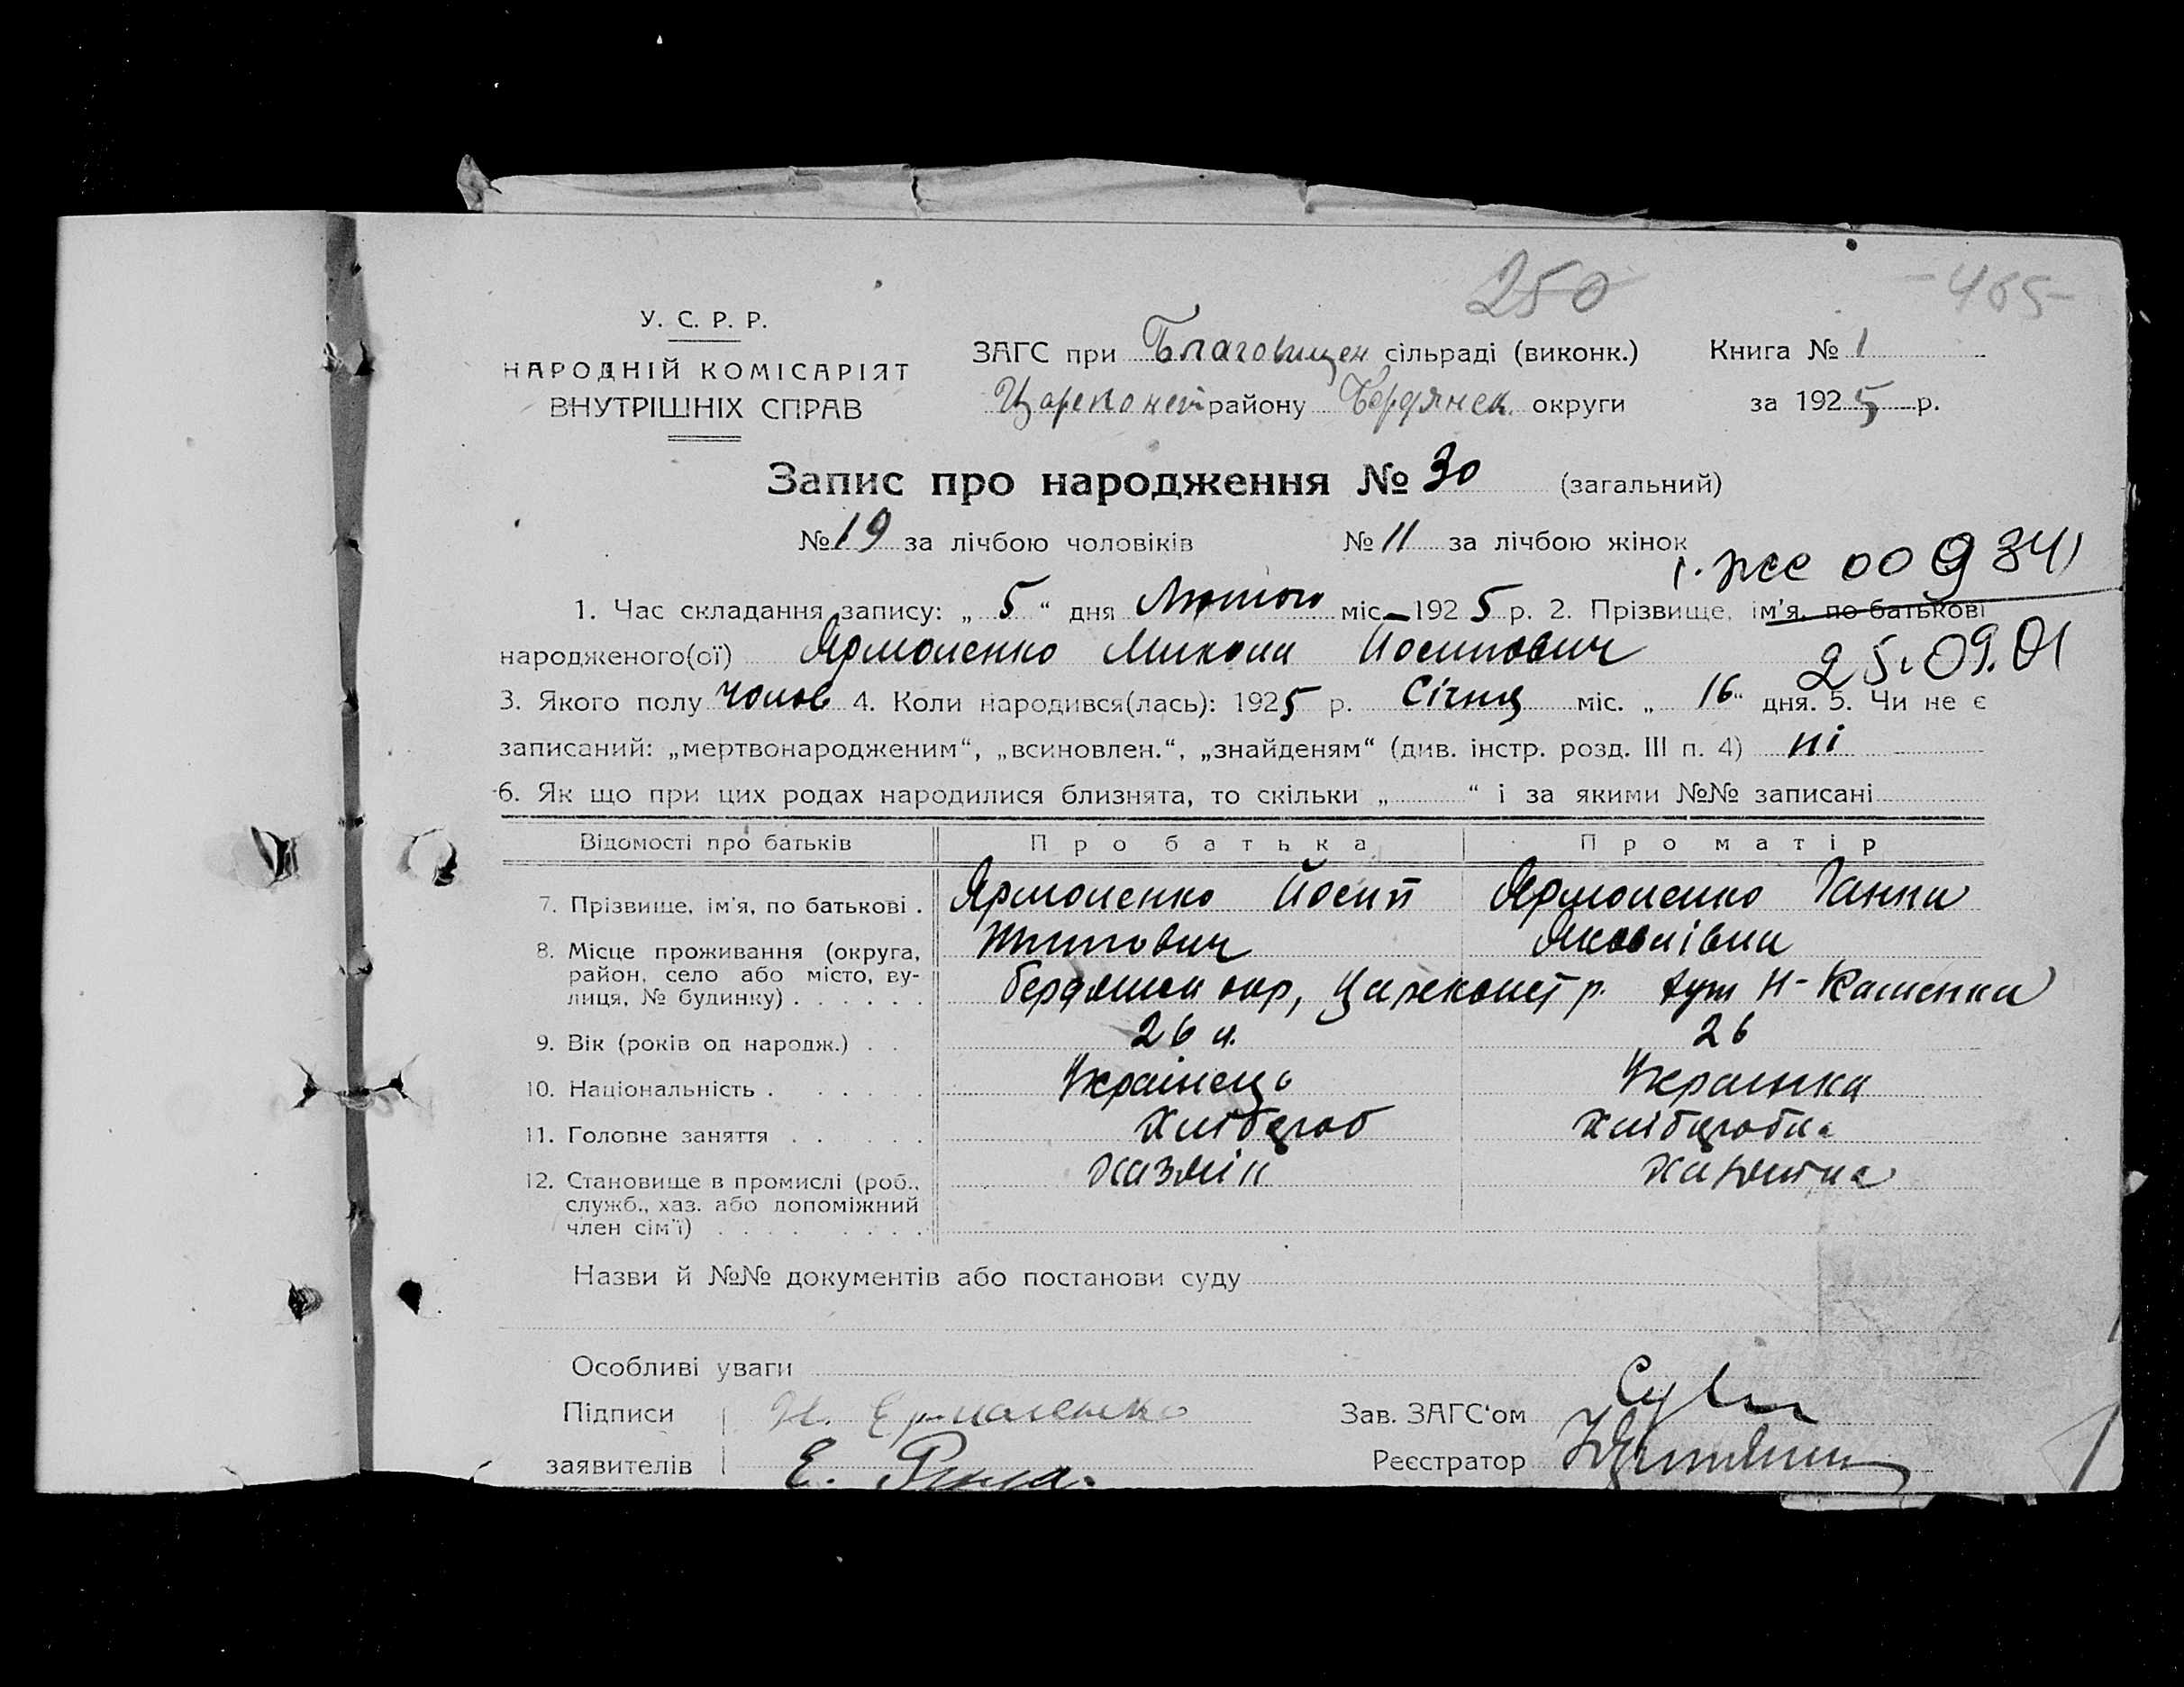 250
-465-
У. С. Р. Р.
НАРОДНІЙ КОМІСАРІЯТ
ВНУТРІШНІХ СПРАВ
ЗАГС при Благовищен сільраді (виконк.) Книга № 1
Цареконст району Бердянск. округи за 1925 р.
Запис про народження № 30 (загальний)
№ 19 за лічбою чоловіків № 11 за лічбою жінок
1. Час складання запису: „ 5 “ дня Лютого міс 1925 р. 2. Прізвище, ім'я, по батькові
народженого(ої) Ярмоленко Микола Йосипович
25.09.01
3. Якого полу чолов 4. Коли народився(лась): 1925 р. Січня міс. „ 16 “ дня. 5. Чи не є
записаний: „мертвонародженим“, „всиновлен.“, „знайденям“ (див. інстр. розд. III п. 4) ні
6. Як що при цих родах народилися близнята, то скільки „ “ і за якими №№ записані
Відомості про батьків Про батька Про матір
7. Прізвище, ім'я, по батькові . Ярмоленко Йосип Ярмоленко Ганна
8. Місце проживання (округа, Яковлівна
район, село або місто, ву-
лиця, № будинку) . . . . . . Бердянськ окр, Цареконст р. хут Н-Каменка
9. Вік (років од народж.) . . 26 л. 26
10. Національність . . . . . . Українець Українка
11. Головне заняття . . . . . Хлібороб Хліборобка
12. Становище в промислі (роб., Хазяїн Хазяйка
служб., хаз. або допоміжний
член сім'ї) . . . . . . . . .
Назви й №№ документів або постанови суду
Особливі уваги
Підписи Ермоленко Зав. ЗАГС'ом
заявителів Е. Реєстратор